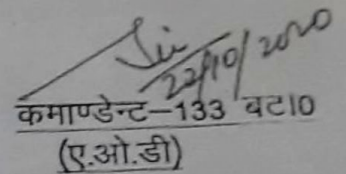 22/10/2020
कमाण्डेन्ट-133 बटा0
(ए.ओ.डी)